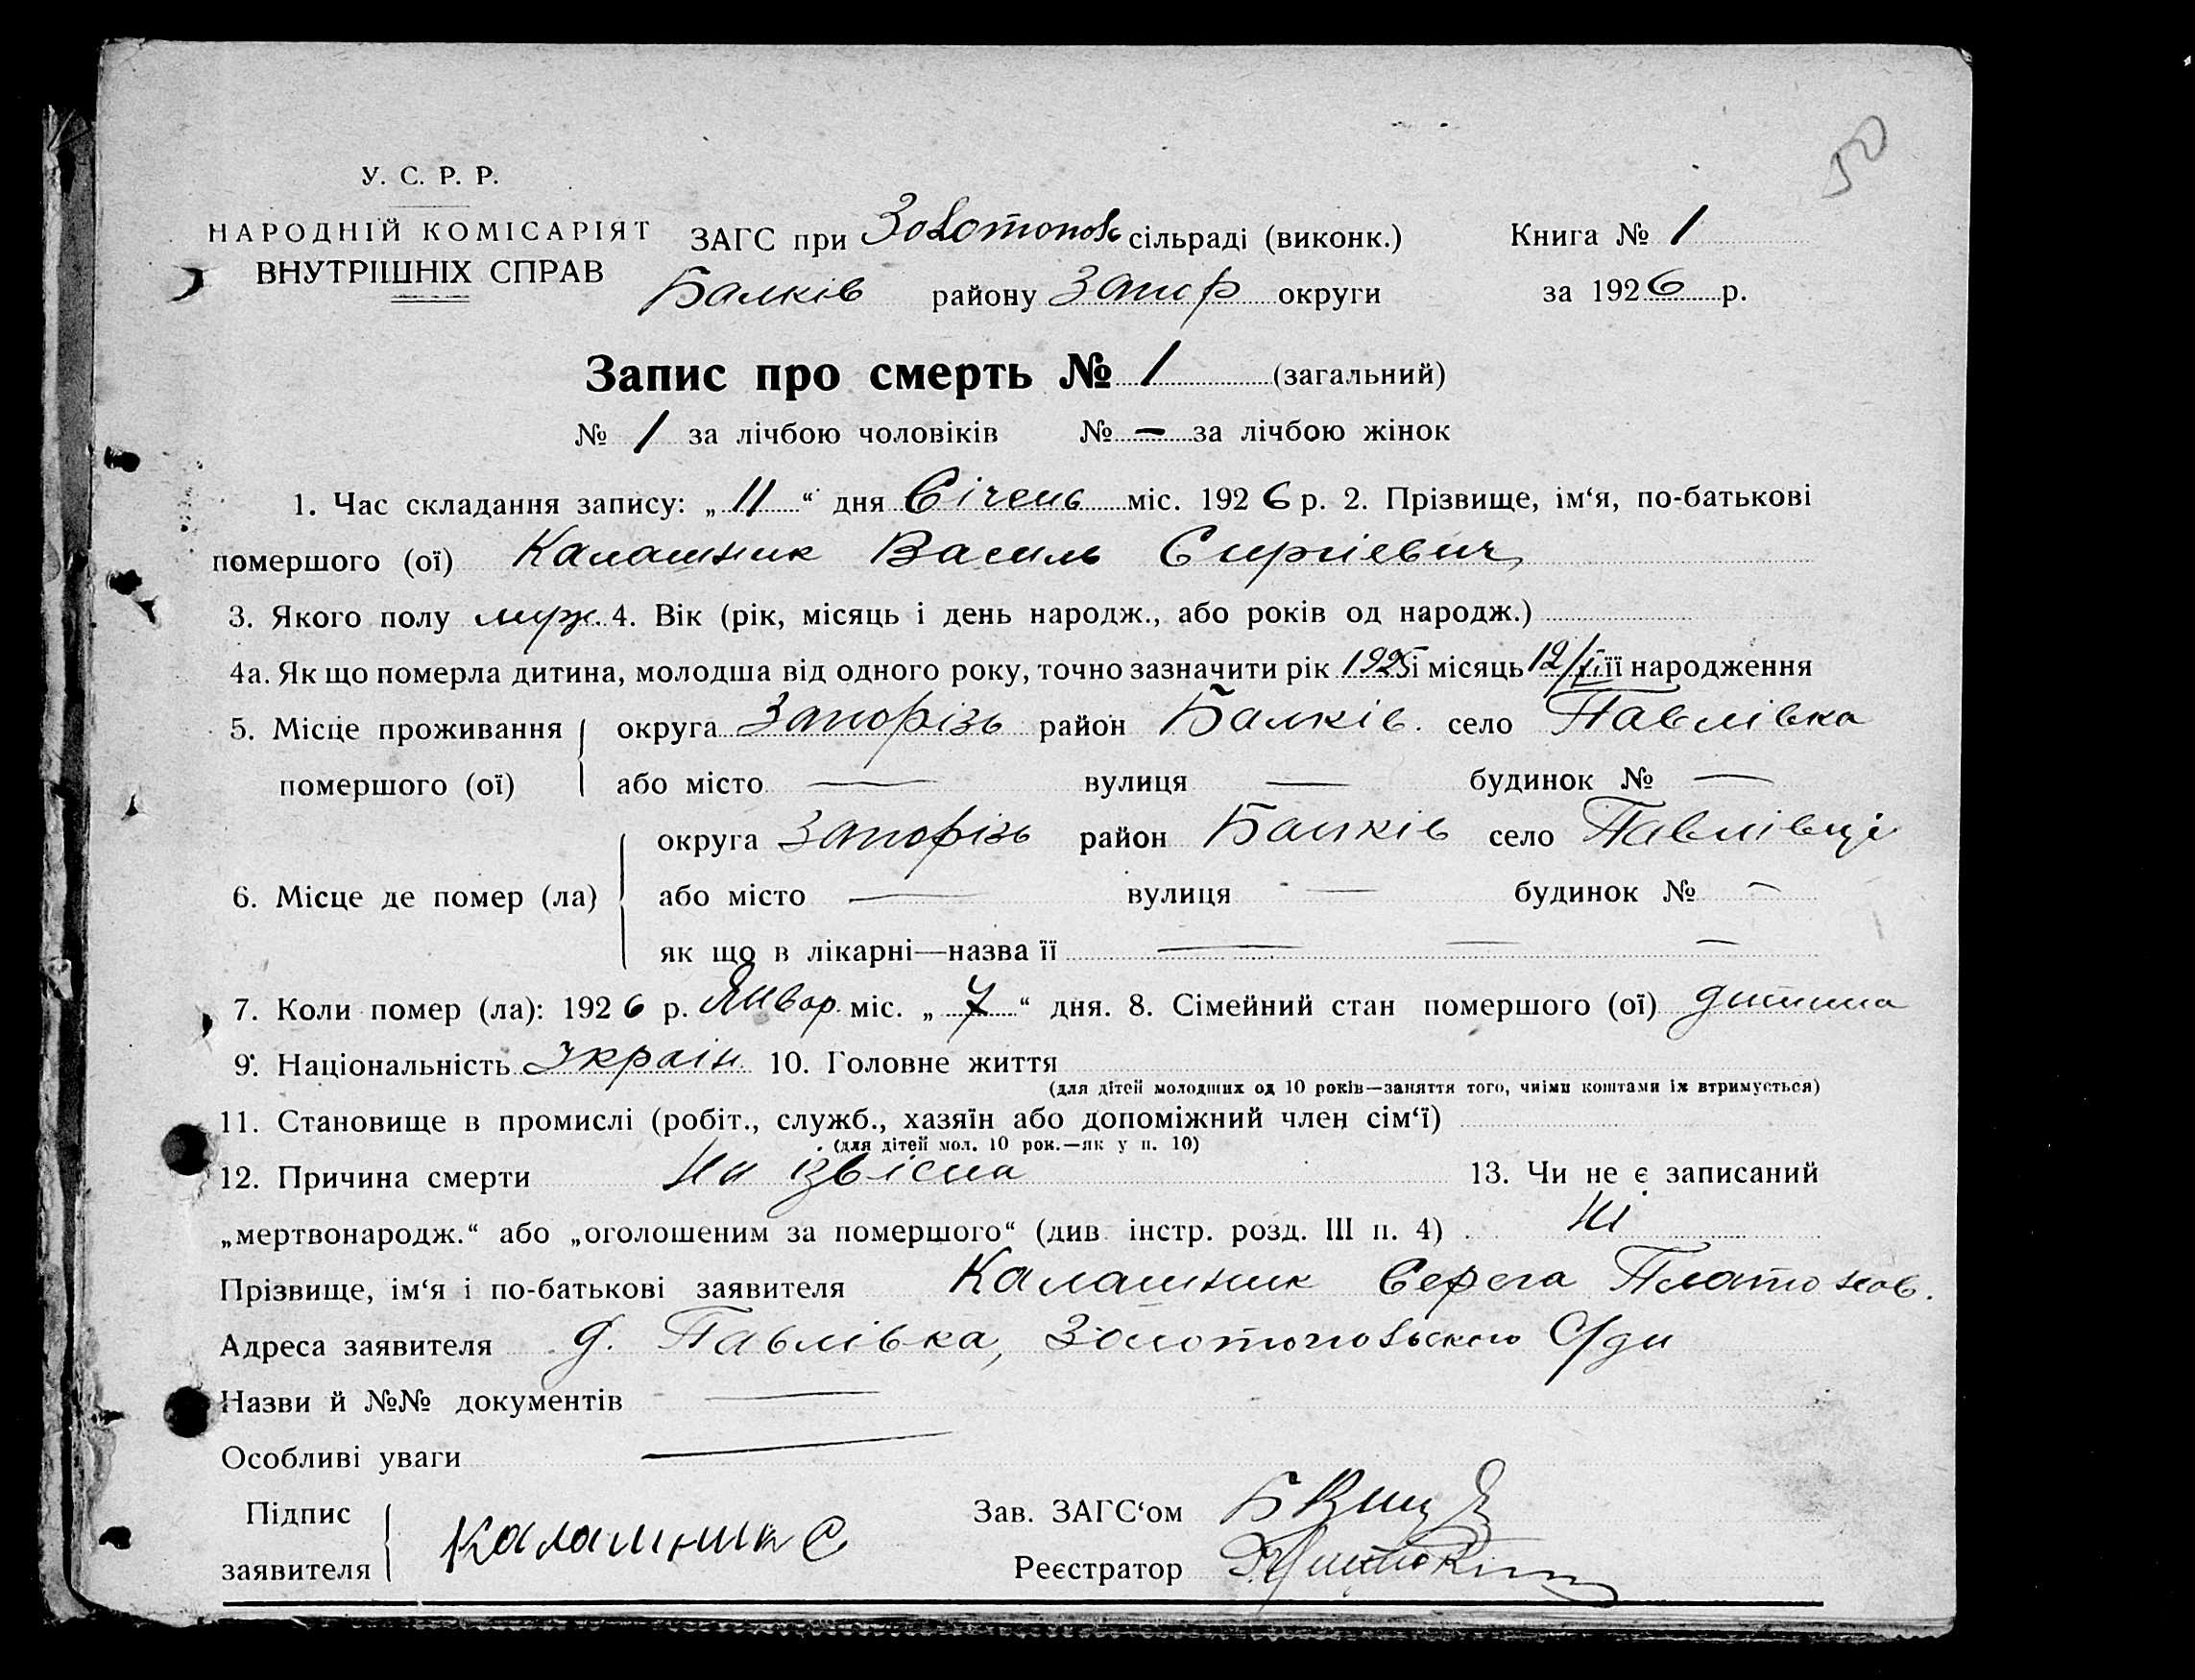 50
У. С. Р. Р.
НАРОДНІЙ КОМІСАРІЯТ
ВНУТРІШНІХ СПРАВ
ЗАГС при сільраді (виконк.) Книга № 1
Балків району Запор округи за 1926 р.
Запис про смерть № 1 (загальний)
№ 1 за лічбою чоловіків № — за лічбою жінок
1. Час складання запису: „ 11 “ дня Січень міс. 1926 р. 2. Прізвище, ім‘я, по-батькові
помершого (ої) Калашник Василь Сиргіевич
3. Якого полу муж. 4. Вік (рік, місяць і день народж., або років од народж.)
4а. Як що померла дитина, молодша від одного року, точно зазначити рік 1925 і місяць 12/ її народження
5. Місце проживання помершого (ої) округа Запорізь район Балків. село Павлівка
або місто — вулиця — будинок № —
6. Місце де помер (ла) округа Запорізь район Балків село Павлівці
або місто — вулиця — будинок № —
як що в лікарні—назва її — — —
7. Коли помер (ла): 1926 р. Январ міс. „ 7 “ дня. 8. Сімейний стан помершого (ої) дитина
9. Національність Україн 10. Головне життя
(для дітей молодших од 10 років—заняття того, чиїми коштами їх втримується)
11. Становище в промислі (робіт., служб., хазяїн або допоміжний член сім‘ї)
(для дітей мол. 10 рок.—як у п. 10)
12. Причина смерти Ни ізвісна 13. Чи не є записаний
„мертвонародж.“ або „оголошеним за помершого“ (див. інстр. розд. III п. 4) Ні
Прізвище, ім‘я і по-батькові заявителя Калашник Серега Платонов.
Адреса заявителя д. Павлівка,
Назви й №№ документів —
Особливі уваги —
Підпис заявителя Калашник С
Зав. ЗАГС‘ом
Реєстратор